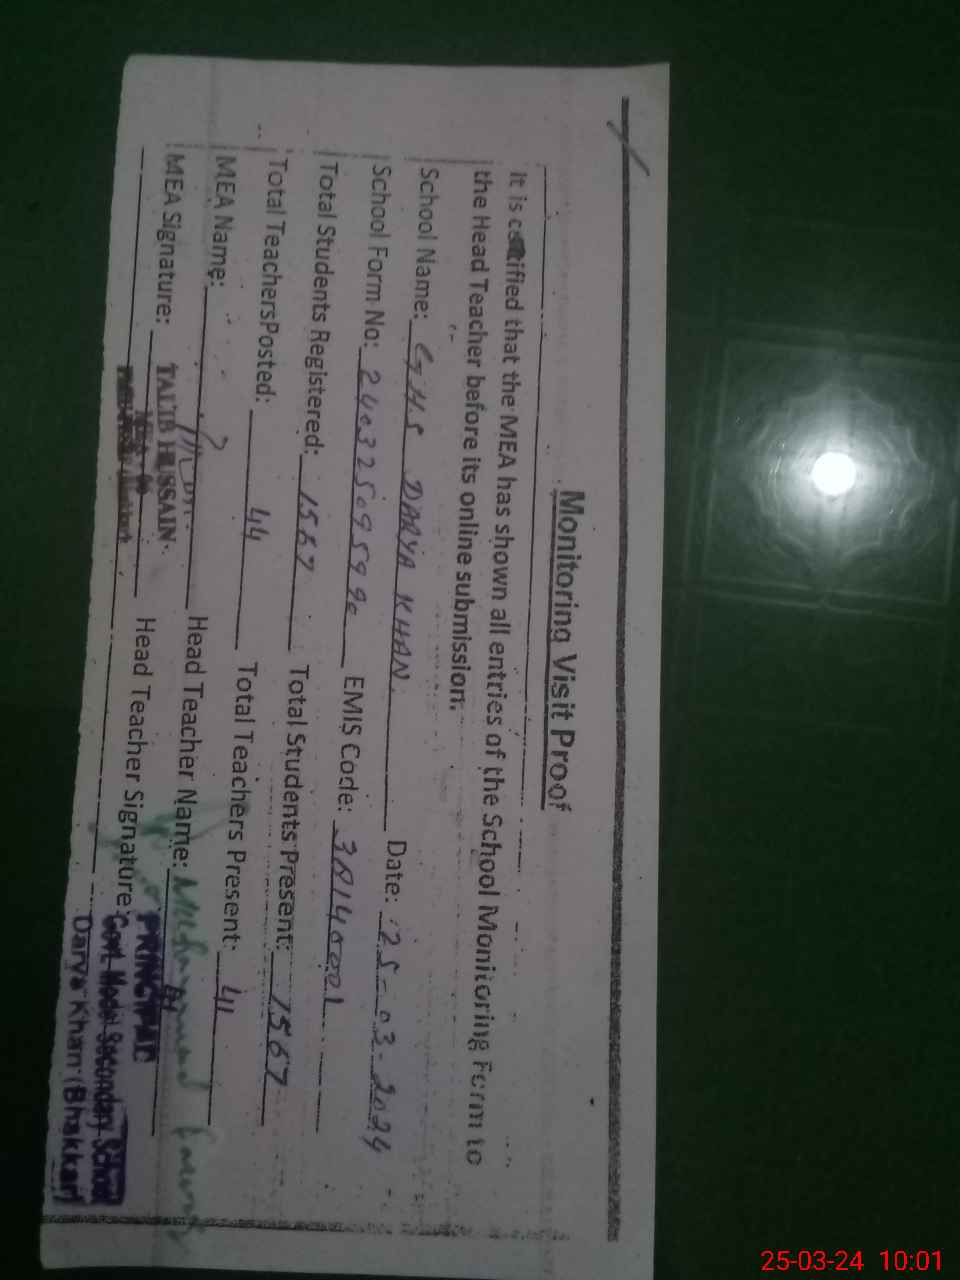 Monitoring Visit Proof
It is certified that the MEA has shown all entries of the School Monitoring Form to
the Head Teacher before its online submission.
School Name: G.H.S DARYA KHAN. Date: 25-03-2024
School Form No: EMIS Code:
Total Students Registered: 1567 Total Students Present: 1567
Total TeachersPosted: 44 Total Teachers Present: 41
MEA Name: Head Teacher Name: Muhammad
MEA Signature: TALIB HUSSAIN Head Teacher Signature:
PRINCIPAL
Govt. Model Secondary School
Darya Khan (Bhakkar)
25-03-24 10:01